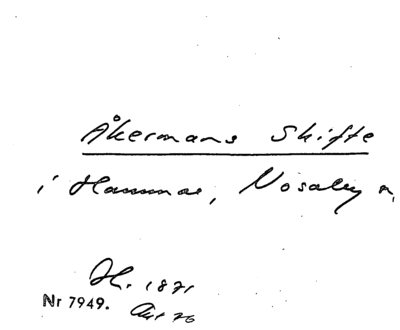 Åkermans Skifte
i Hammar, Nosaby s,
Jh. 1871
Nr 7949. Akt 76